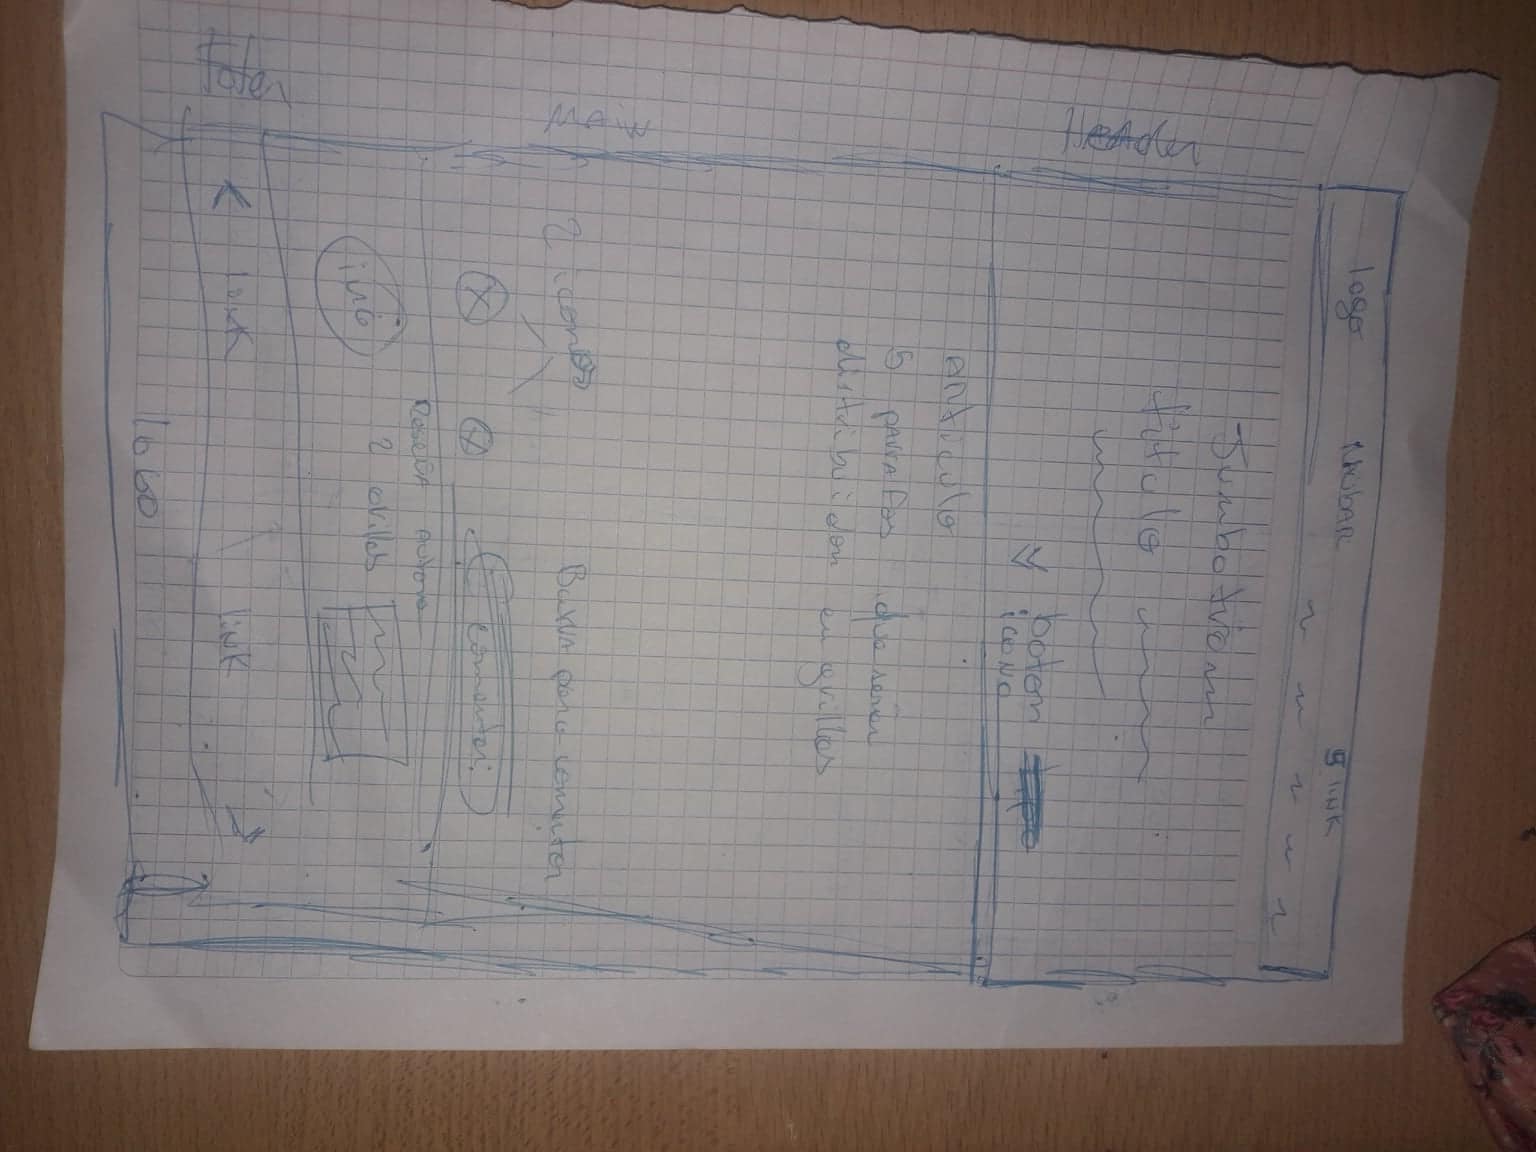 logo NAVBAR 5 LINK
Jumbotrom
título
boton
icono
Header
Articulo
5 parrafos que seran
distribuidon en grillas
Main
2 iconos Barra para comentar
comentar:
Reseña Autora
img 2 grillas
Foter
< link link >>
logo